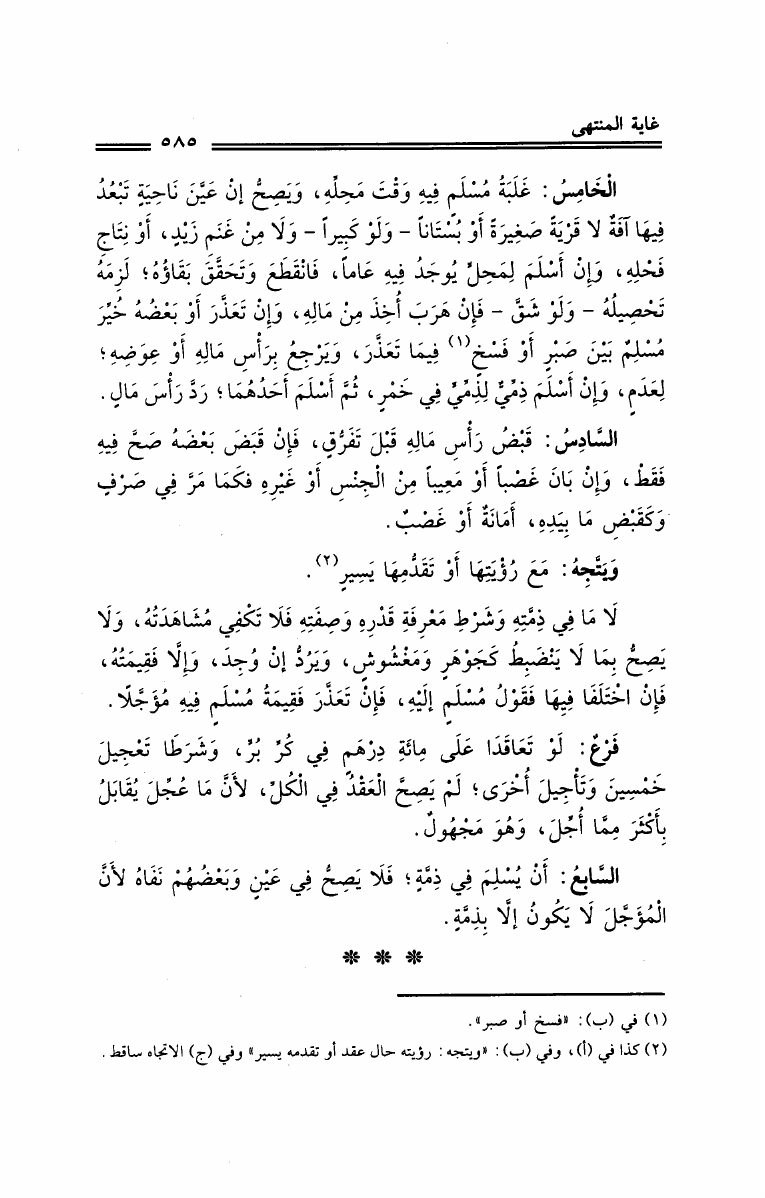 غاية المنتهى
٥٨٥
الْخَامِسُ: غَلَبَةُ مُسْلَمٍ فِيهِ وَقْتَ مَحِلِّهِ، وَيَصِحُّ إنْ عَيَّنَ نَاحِيَةٍ تَبْعُدُ
فِيهَا آفَةٌ لا قَرْيَةً صَغِيرَةً أَوْ بُسْتَاناً - وَلَوْ كَبِيراً - وَلَا مِنْ غَنَمِ زَيْدٍ، أَوْ نِتَاجِ
فَحْلِهِ، وَإِنْ أَسْلَمَ لِمَحِلٍّ يُوجَدُ فِيهِ عَاماً، فَانْقَطَعَ وَتَحَقَّقَ بَقَاؤُهُ؛ لَزِمَهُ
تَحْصِيلُهُ - وَلَوْ شَقَّ - فَإِنْ هَرَبَ أُخِذَ مِنْ مَالِهِ، وَإِنْ تَعَذَّرَ أَوْ بَعْضُهُ خُيِّرَ
مُسْلِمٌ بَيْنَ صَبْرٍ أَوْ فَسْخٍ(١) فِيمَا تَعَذَّرَ، وَيَرْجِعُ بِرَأْسِ مَالِهِ أَوْ عِوَضِهِ؛
لِعَدَمٍ، وَإِنْ أَسْلَمَ ذِمِّيٌّ لِذِمِّيٍّ فِي خَمْرٍ، ثُمَّ أَسْلَمَ أَحَدُهُمَا؛ رَدَّ رَأْسَ مَالٍ.
السَّادِسُ: قَبْضُ رَأْسِ مَالِهِ قَبْلَ تَفَرُّقٍ، فَإِنْ قَبَضَ بَعْضَهُ صَحَّ فِيهِ
فَقَطْ، وَإِنْ بَانَ غَصْباً أَوْ مَعِيباً مِنْ الْجِنْسِ أَوْ غَيْرِهِ فكَمَا مَرَّ فِي صَرْفٍ
وَكَقَبْضٍ مَا بِيَدِهِ، أَمَانَةٌ أَوْ غَصْبٌ.
وَيَتَّجِهُ: مَعَ رُؤْيَتِهَا أَوْ تَقَدُّمِهَا يَسِيرٍ(٢).
لَا مَا فِي ذِمَّتِهِ وَشَرْطِ مَعْرِفَةِ قَدْرِهِ وَصِفَتِهِ فَلَا تَكْفِي مُشَاهَدَتُهُ، وَلَا
يَصِحُّ بِمَا لَا يَنْضَبِطُ كَجَوْهَرٍ وَمَغْشُوشٍ، وَيَرُدُّ إنْ وُجِدَ، وَإِلَّا فَقِيمَتُهُ،
فَإِنْ اخْتَلَفَا فِيهَا فَقَوْلُ مُسْلَمٍ إلَيْهِ، فَإِنْ تَعَذَّرَ فَقِيمَةُ مُسْلَمٍ فِيهِ مُؤَجَّلًا.
فَرْعٌ: لَوْ تَعَاقَدَا عَلَى مِائَةِ دِرْهَمٍ فِي كُرِّ بُرٍّ، وَشَرَطَا تَعْجِيلَ
خَمْسِينَ وَتَأْجِيلَ أُخْرَى؛ لَمْ يَصِحَّ الْعَقْدُ فِي الْكُلِّ، لأَنَّ مَا عُجِّلَ يُقَابَلُ
بِأَكْثَرَ مِمَّا أُجِّلَ، وَهُوَ مَجْهُولٌ.
السَّابِعُ: أَنْ يُسْلِمَ فِي ذِمَّةٍ؛ فَلَا يَصِحُّ فِي عَيْنٍ وَبَعْضُهُمْ نَفَاهُ لأَنَّ
الْمُؤَجَّلَ لَا يَكُونُ إلَّا بِذِمَّةٍ.
* * *
(١) في (ب): «فسخ أو صبر».
(٢) كذا في (أ)، وفي (ب): «ويتجه: رؤيته حال عقد أو تقدمه يسير» وفي (ج) الاتجاه ساقط.